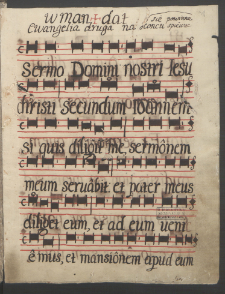 w man dat
Ewangelia druga na
Sermo Domini nostri Iesu
christi secundum Ioannem
si quis diligit me sermonem
meum seruabit, et pater meus
diliget eum, et ad eum ueni
emus, et mansionem apud eum